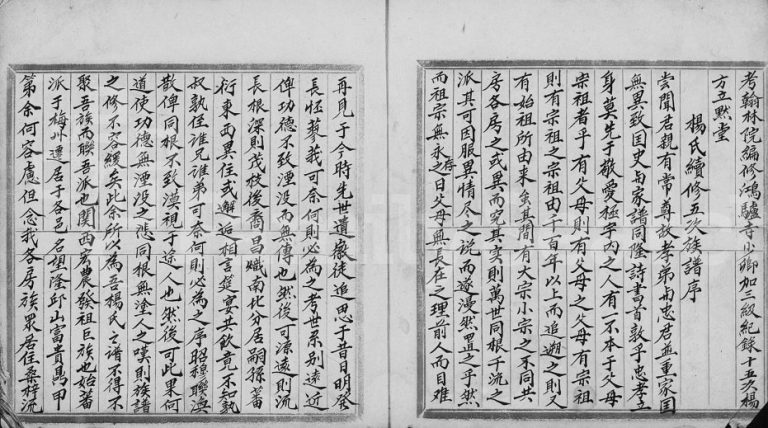 考翰林院編修鴻臚寺少卿加三級紀錄十五次楊
方立默堂
楊氏續修五次族譜序
尝聞君親有常尊故孝弟与忠君並重家国
無異致国史与家譜同隆詩書首敦乎忠孝立
身莫先于敬愛極宇内之人有一不本于父母
宗祖者乎有父母則有父母之父母有宗祖
則有宗祖之宗祖由千百年以上而追遡之則又
有始祖所由来矣其間有大宗小宗之不同共
房各房之或異而究其实則萬世同根千流之
派其可因服異情尽之说而遂漫然置之乎然
而祖宗無永存之日父母無長在之理前人而目难
再見于今時先世遺徽徒追思于昔日明發
長怪蓼莪可奈何則必為之考世系别遠近
俾功德不致湮没而無傳也然後可源遠則流
長根深則茂枝後裔昌熾南北分居嗣孫蕃
衍東西異住或邂逅相逢筵宴共飲竟不知孰
叔孰侄誰兄誰弟可奈何則必為之序昭穆聯
散俾同根不致漠视于途人也然後可此果何
道使功德無湮没之悲同根無塗人之嘆則族譜
之修不容緩矣此余所以為吾楊氏之谱不得不
聚吾族而聯吾派也関西宏農發祖巨族也始蕃
派于梅州遷居于各邑名望隆邱山富貴昌甲
第余何容慮但念我各房族眾居住桑梓流